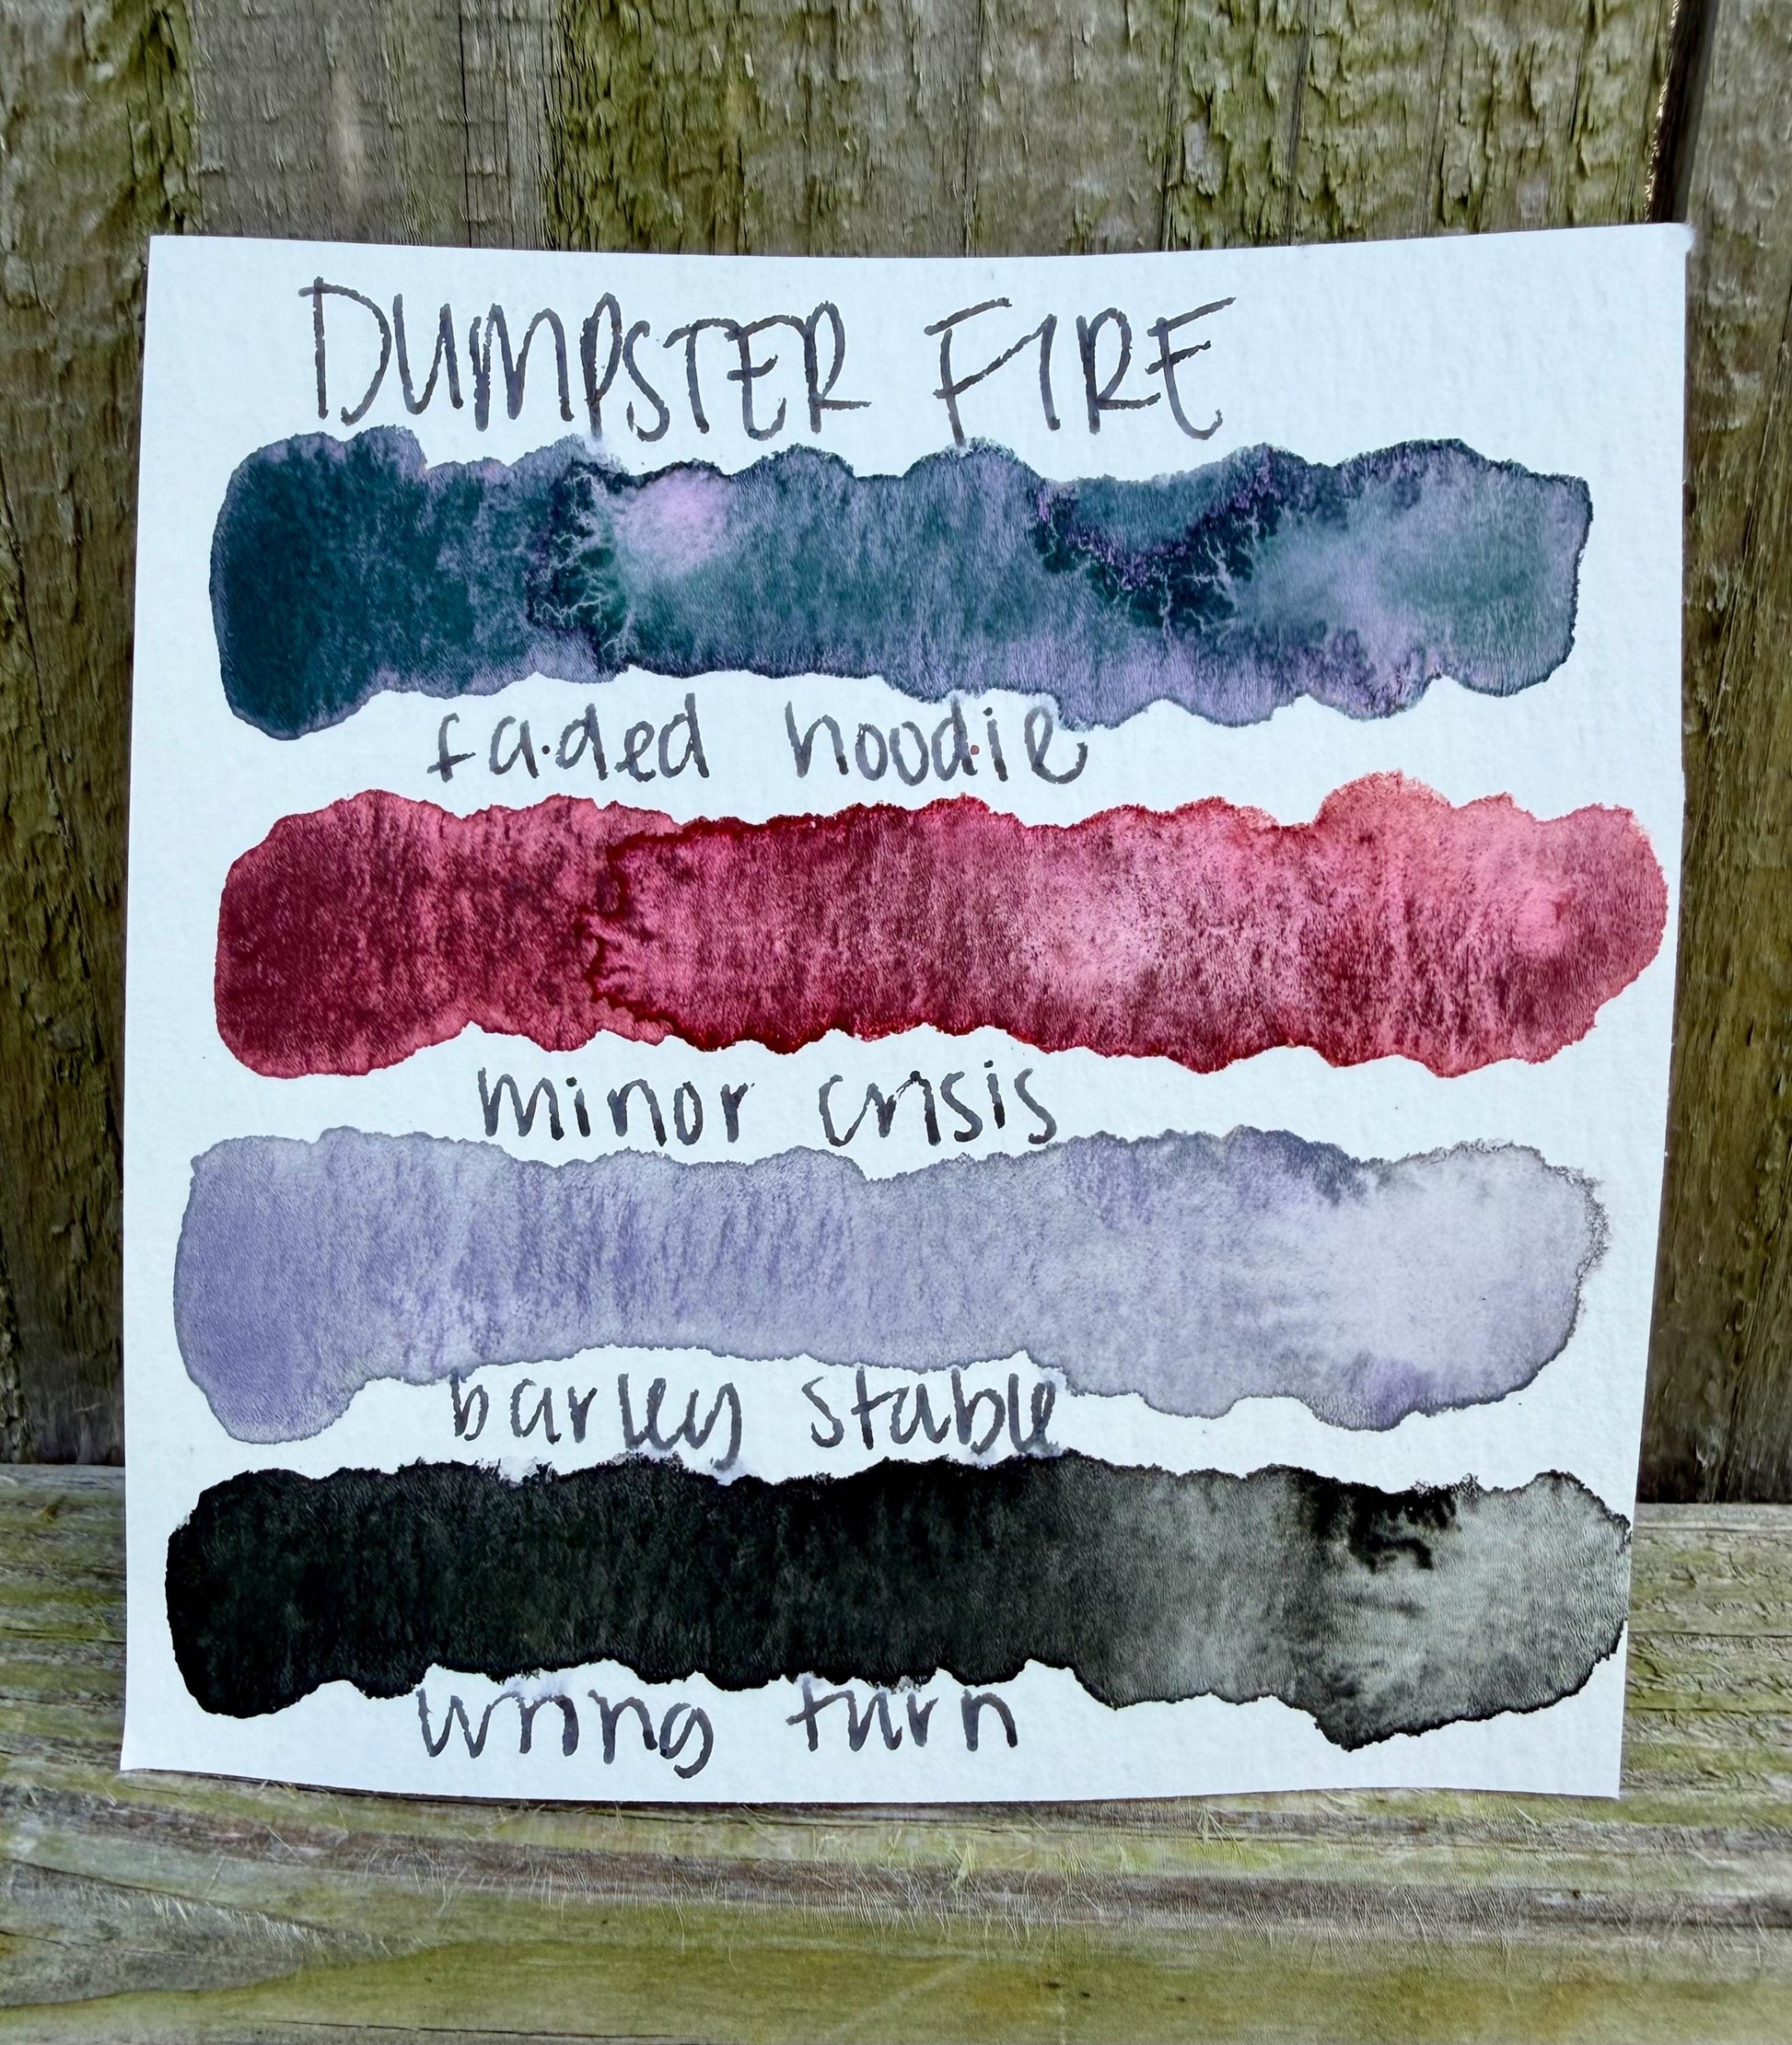 DUMPSTER FIRE
faded hoodie
minor crisis
barley stable
wrong turn